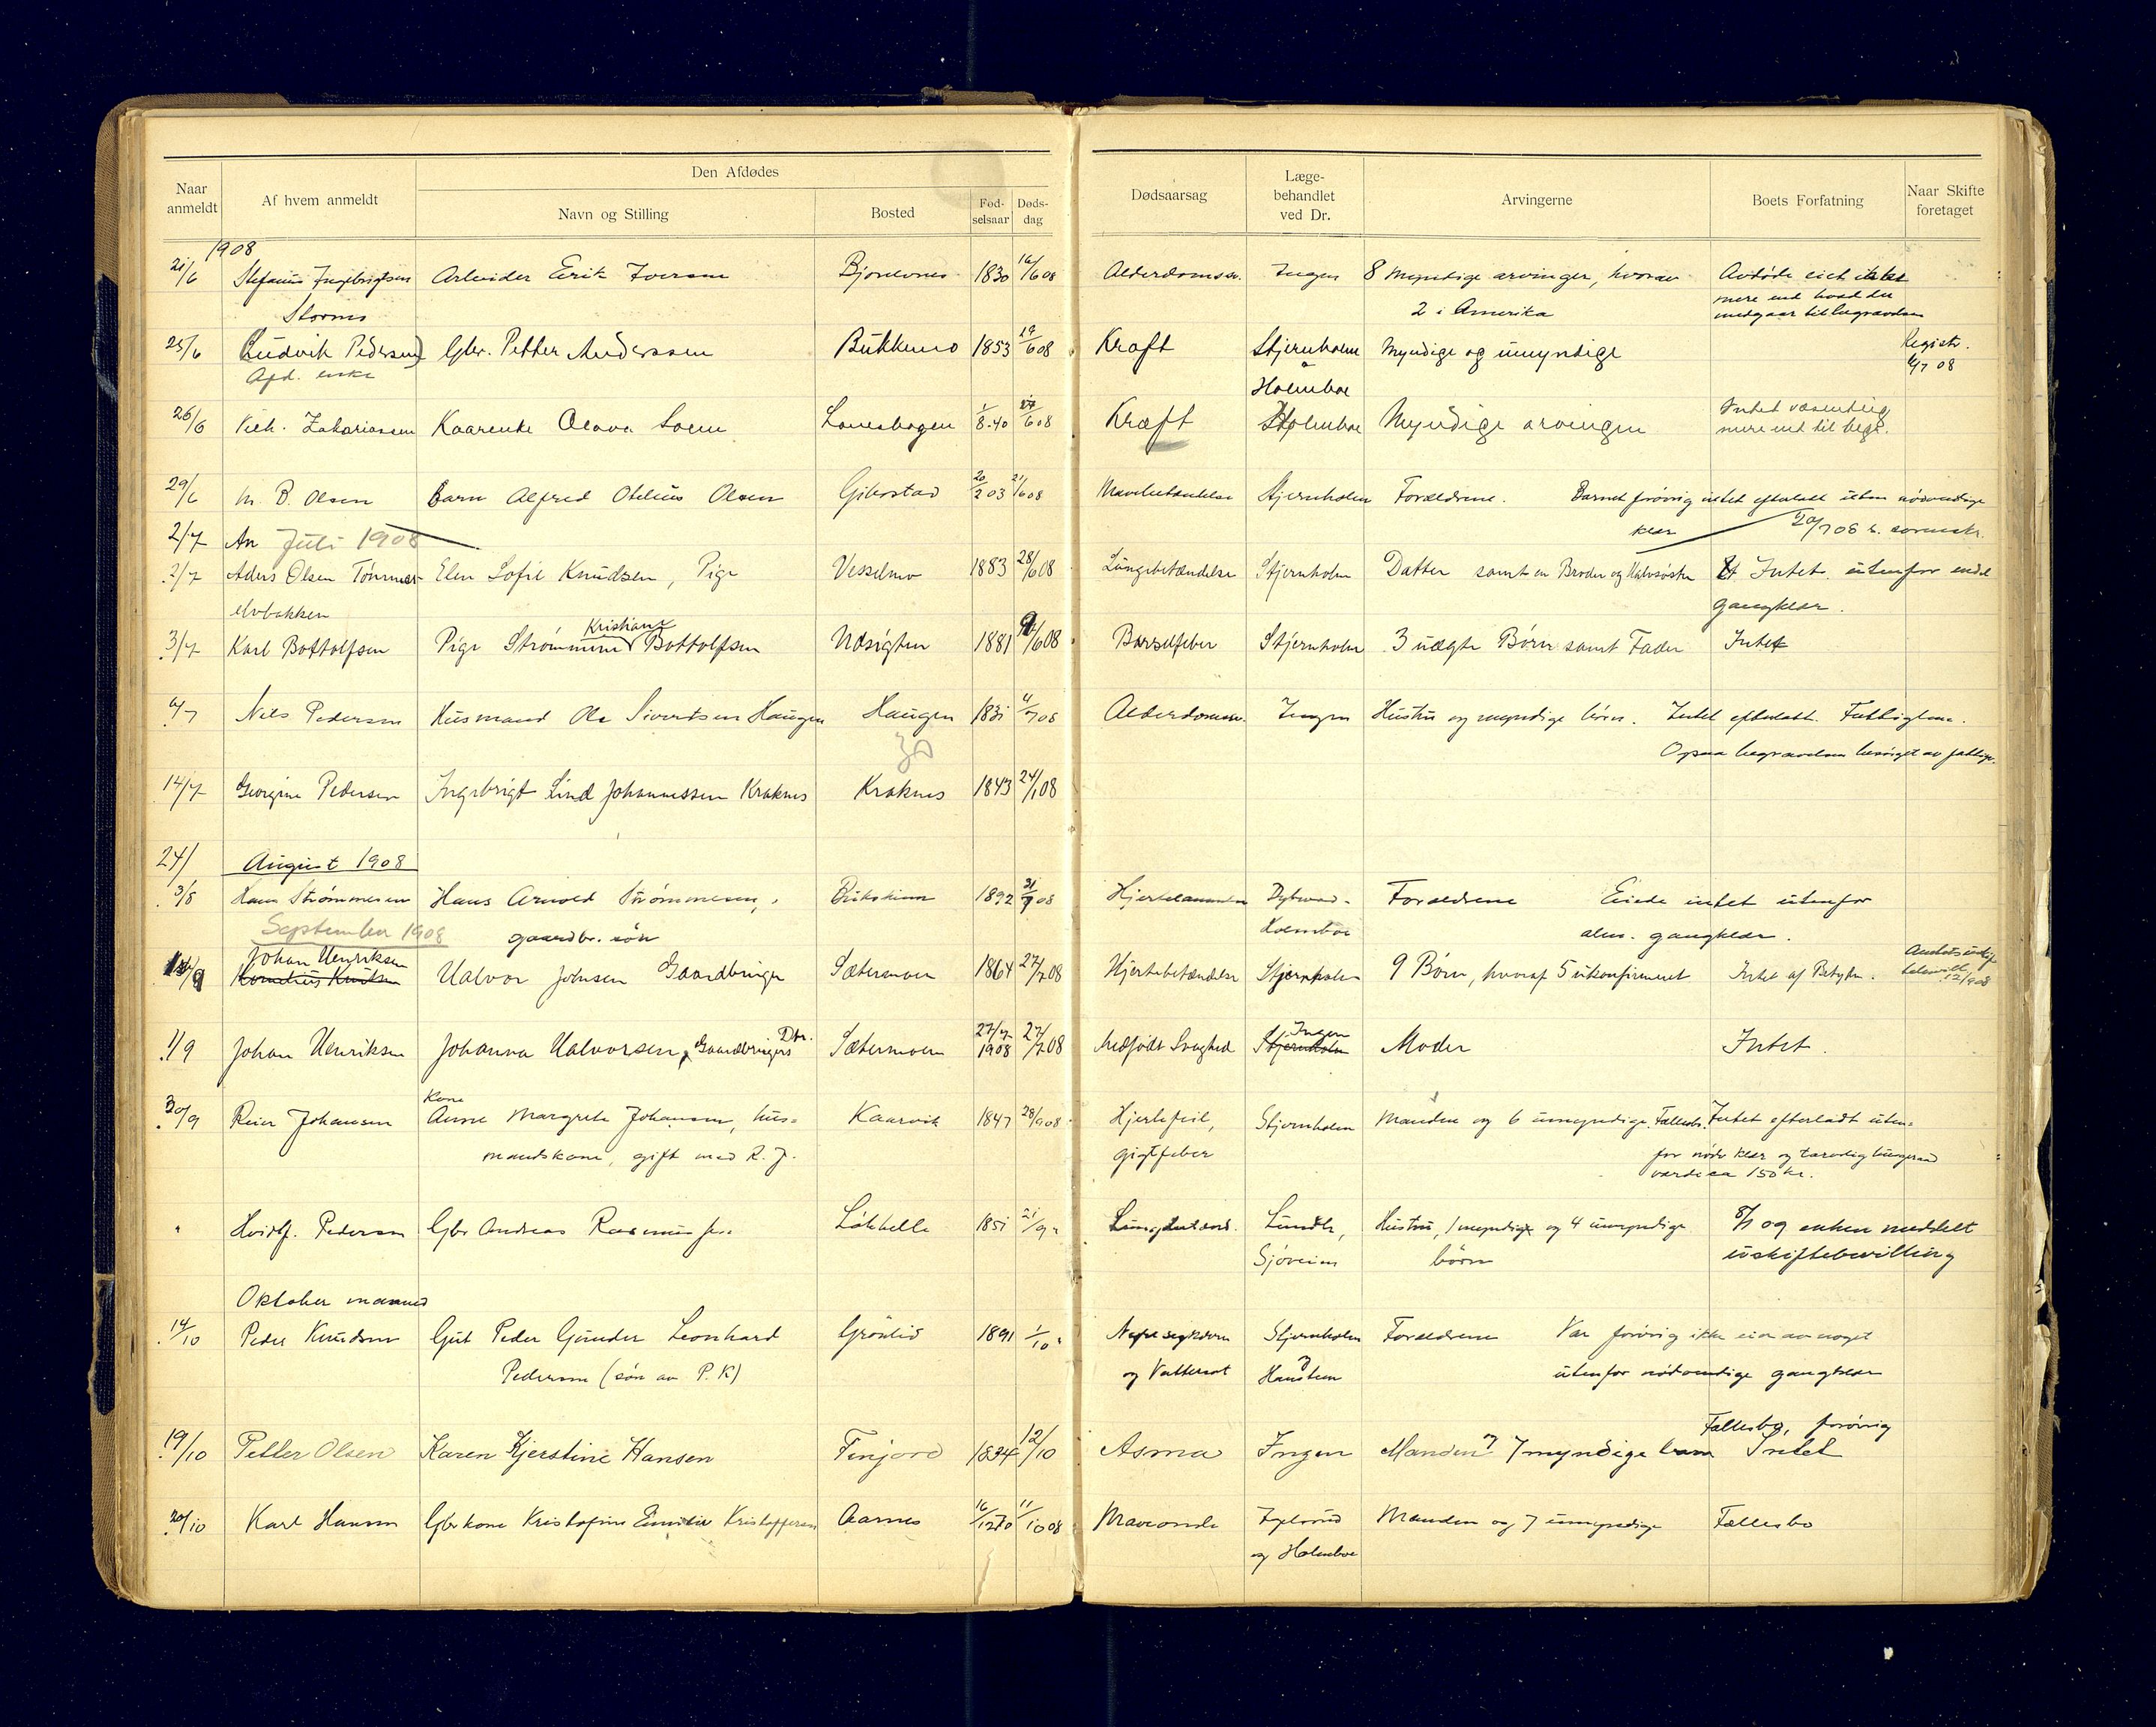 Naar anmeldt
Af hvem anmeldt
Den Afdødes
Navn og Stilling
Bosted
Fød-selsaar
Døds-dag
Dødsaarsag
Læge-behandlet ved Dr.
Arvingerne
Boets Forfatning
Naar Skifte foretaget
1908
21/6 Stefanus Ingebrigtsen Arbeider Erik Iversen Bjorelvnes 1830 16/6 08 Alderdomssv. Ingen 8 myndige arvinger, hvorav Avdøde eiet ikke
Stornes 2 i Amerika mere end hvad der
medgaar til begravelsen
25/6 Ludvik Pedersen Gbr. Petter Anderssen Bukkemo 1853 19/6 08 Kræft Stjernholm Myndige og umyndige Registr.
Afd. enke 6/7 08
Holmboe
26/6 Zakariassen Kaarenke Olava Loen 1/8.40 /6 08 Kræft Holmboe Myndige arvinger Intet væsentlig
mere end til begr.
29/6 M. B. Olsen Barn Alfred Otelius Olsen Gibostad 20/2 03 21/6 08 Stjernholm Forældrene. Barnet forøvrig intet efterlatt uten nødvendige
klær 20/7 08
2/7 An Juli 1908
2/7 Aders Olsen Tømmer- Elen Sofie Knudsen, Pige Vesselmo 1883 28/6 08 Lungebetændelse Stjernholm Datter samt en Broder og Halvsøster Intet utenfor endel
elvbakken gangklær.
Kristiane
3/7 Karl Bottolfsen Pige Strømmine Bottolfsen Udsigten 1881 /6 08 Barselfeber Stjernholm 3 uægte Børn samt Fader Intet
6/7 Nils Pedersen Husmand Ole Sivertsen Haugen Haugen 1831 4/7 08 Alderdomssv. Ingen Hustru og myndige børn. Intet efterlatt. Fattiglem.
30 Ogsaa begravelsen besørget av fattigv.
14/7 Georgine Pedersen Ingebrigt Lind Johannessen Kraknes Kraknes 1843 24/1 08
24/ August 1908
3/8 Hans Strømmesen Hans Arnold Strømmesen, 1892 31/7 08 Dybwad- Forældrene Eiede intet utenfor
September 1908 gaardbr. søn Holmboe alm. gangklær.
Johan Henriksen
/9 Kornelius Knutsen Halvor Johnsen Gaardbruger Sætermoen 1864 27/7 08 Hjertebetændelse Stjernholm 9 Børn, hvoraf 5 ukonfirmeret Intet af Betydn.
12/9 08
1/9 Johan Henriksen Johanna Halvorsen, Gaardbrugers Dtr. Sætermoen 27/7 1908 27/7 08 Medfødt Svaghed Stjernholm Ingen Moder Intet.
Kone
30/9 Reier Johansen Anne Margrete Johansen, hus= Kaarvik 1847 28/9 08 Hjertefeil, Stjernholm Manden og 6 umyndige. Fællesb. Intet efterladt uten=
mandskone, gift med R. J. gigtfeber for nødv klær og
værdi ca 150 kr.
" Hvidtf. Pedersen Gbr Andreas Rasmussen Løkhelle 1851 21/9 " Lungebetænd. Lundh, Hustru, 1 myndig og 4 umyndige 8/1 09 enken meddelt
Sjøveien børn uskiftebevilling
Oktober maaned
14/10 Peder Knudsen Gut Peder Gunder Leonhard Grønlid 1891 1/10 " Nyresygdom Stjernholm Forældrene Var forøvrig ikke eier av noget
Pedersen (søn av P. K) og Vattersot og Hanstem utenfor nødvendige gangklær
Fællesbo, forøvrig
19/10 Petter Olsen Karen Kjerstine Hansen Finjord 1834 12/10 Asma Ingen Manden og 7 myndige barn Intet
20/10 Karl Hansen Gbr kone Kristofine Emilie Kristoffersen Aarnes 16/12 70 11/10 08 Maveonde Manden og 7 umyndige Fællesbo
og Holmboe